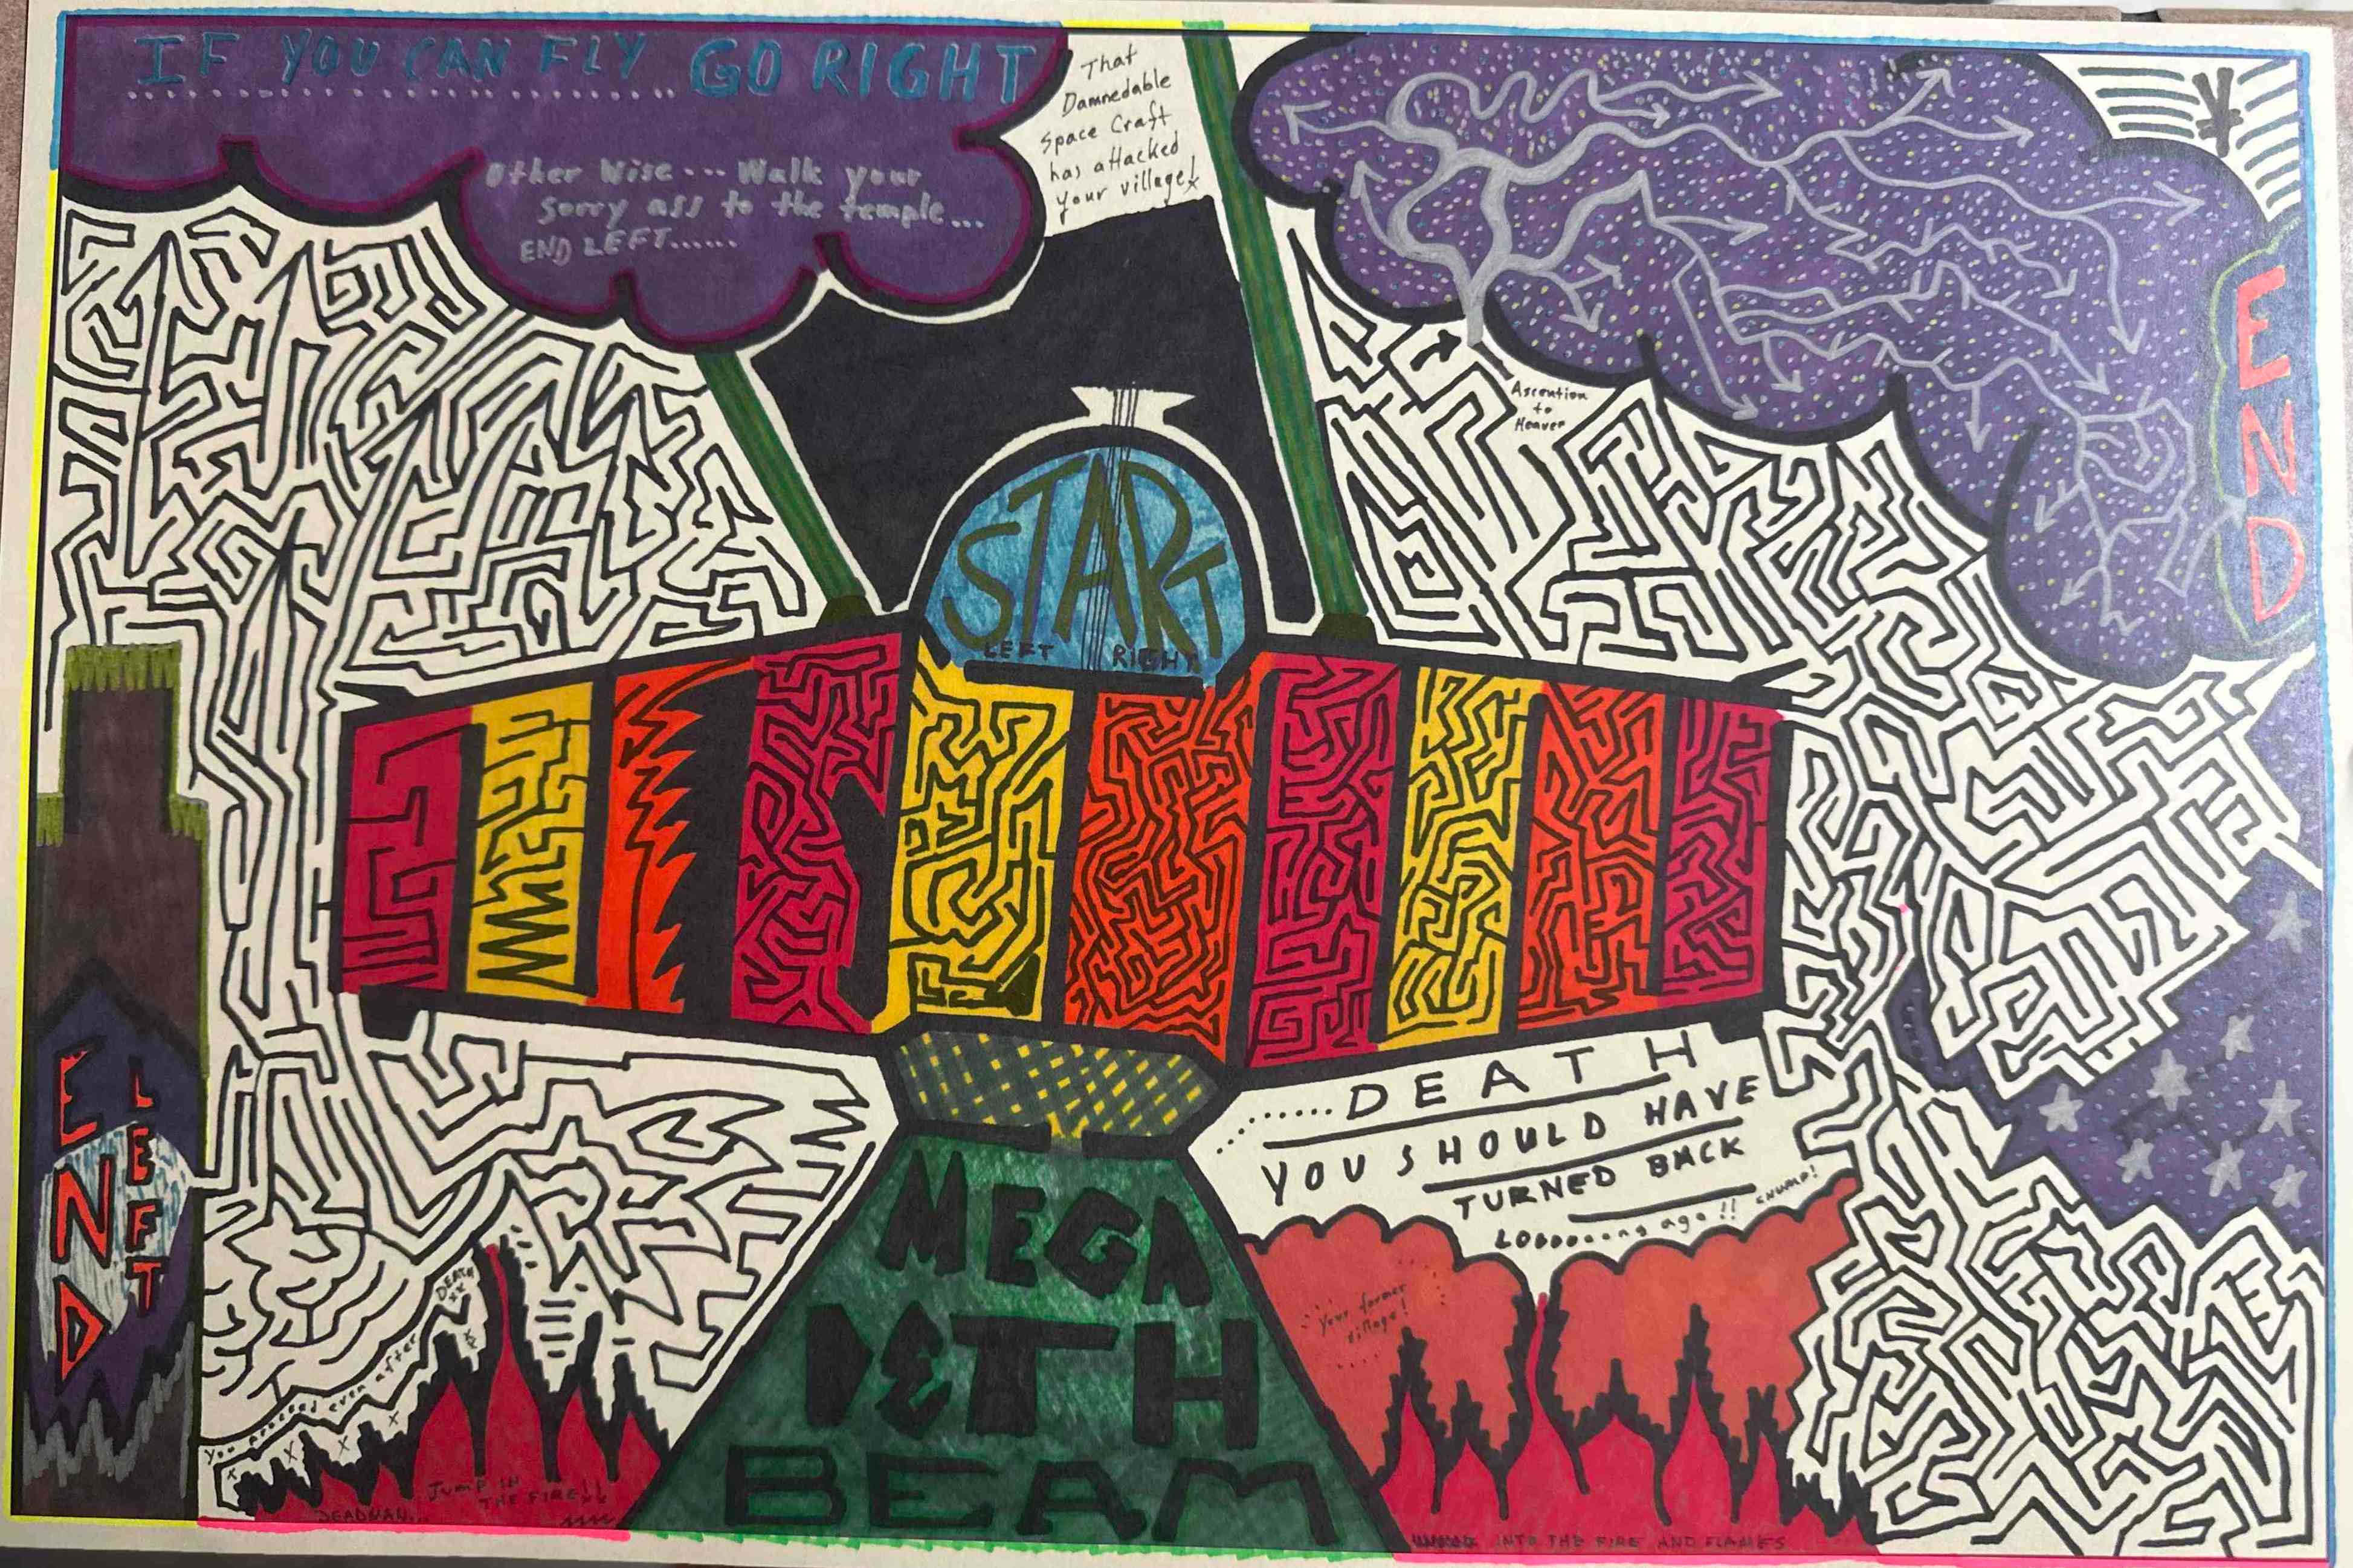 IF YOU CAN FLY GO RIGHT
Other Wise... Walk your
sorry ass to the temple...
END LEFT......
That
Damnedable
Space Craft
has attacked
your village!
Ascention
to
Heaven
END
START
LEFT RIGHT
END
LEFT
.......DEATH
YOU SHOULD HAVE
TURNED BACK
LOOooooong ago!! CHUMP!
Your former
village!
MEGA
DETH
BEAM
DEATH
You approached even after
JUMP IN
THE FIRE!!
DEADMAN...
INTO THE FIRE AND FLAMES